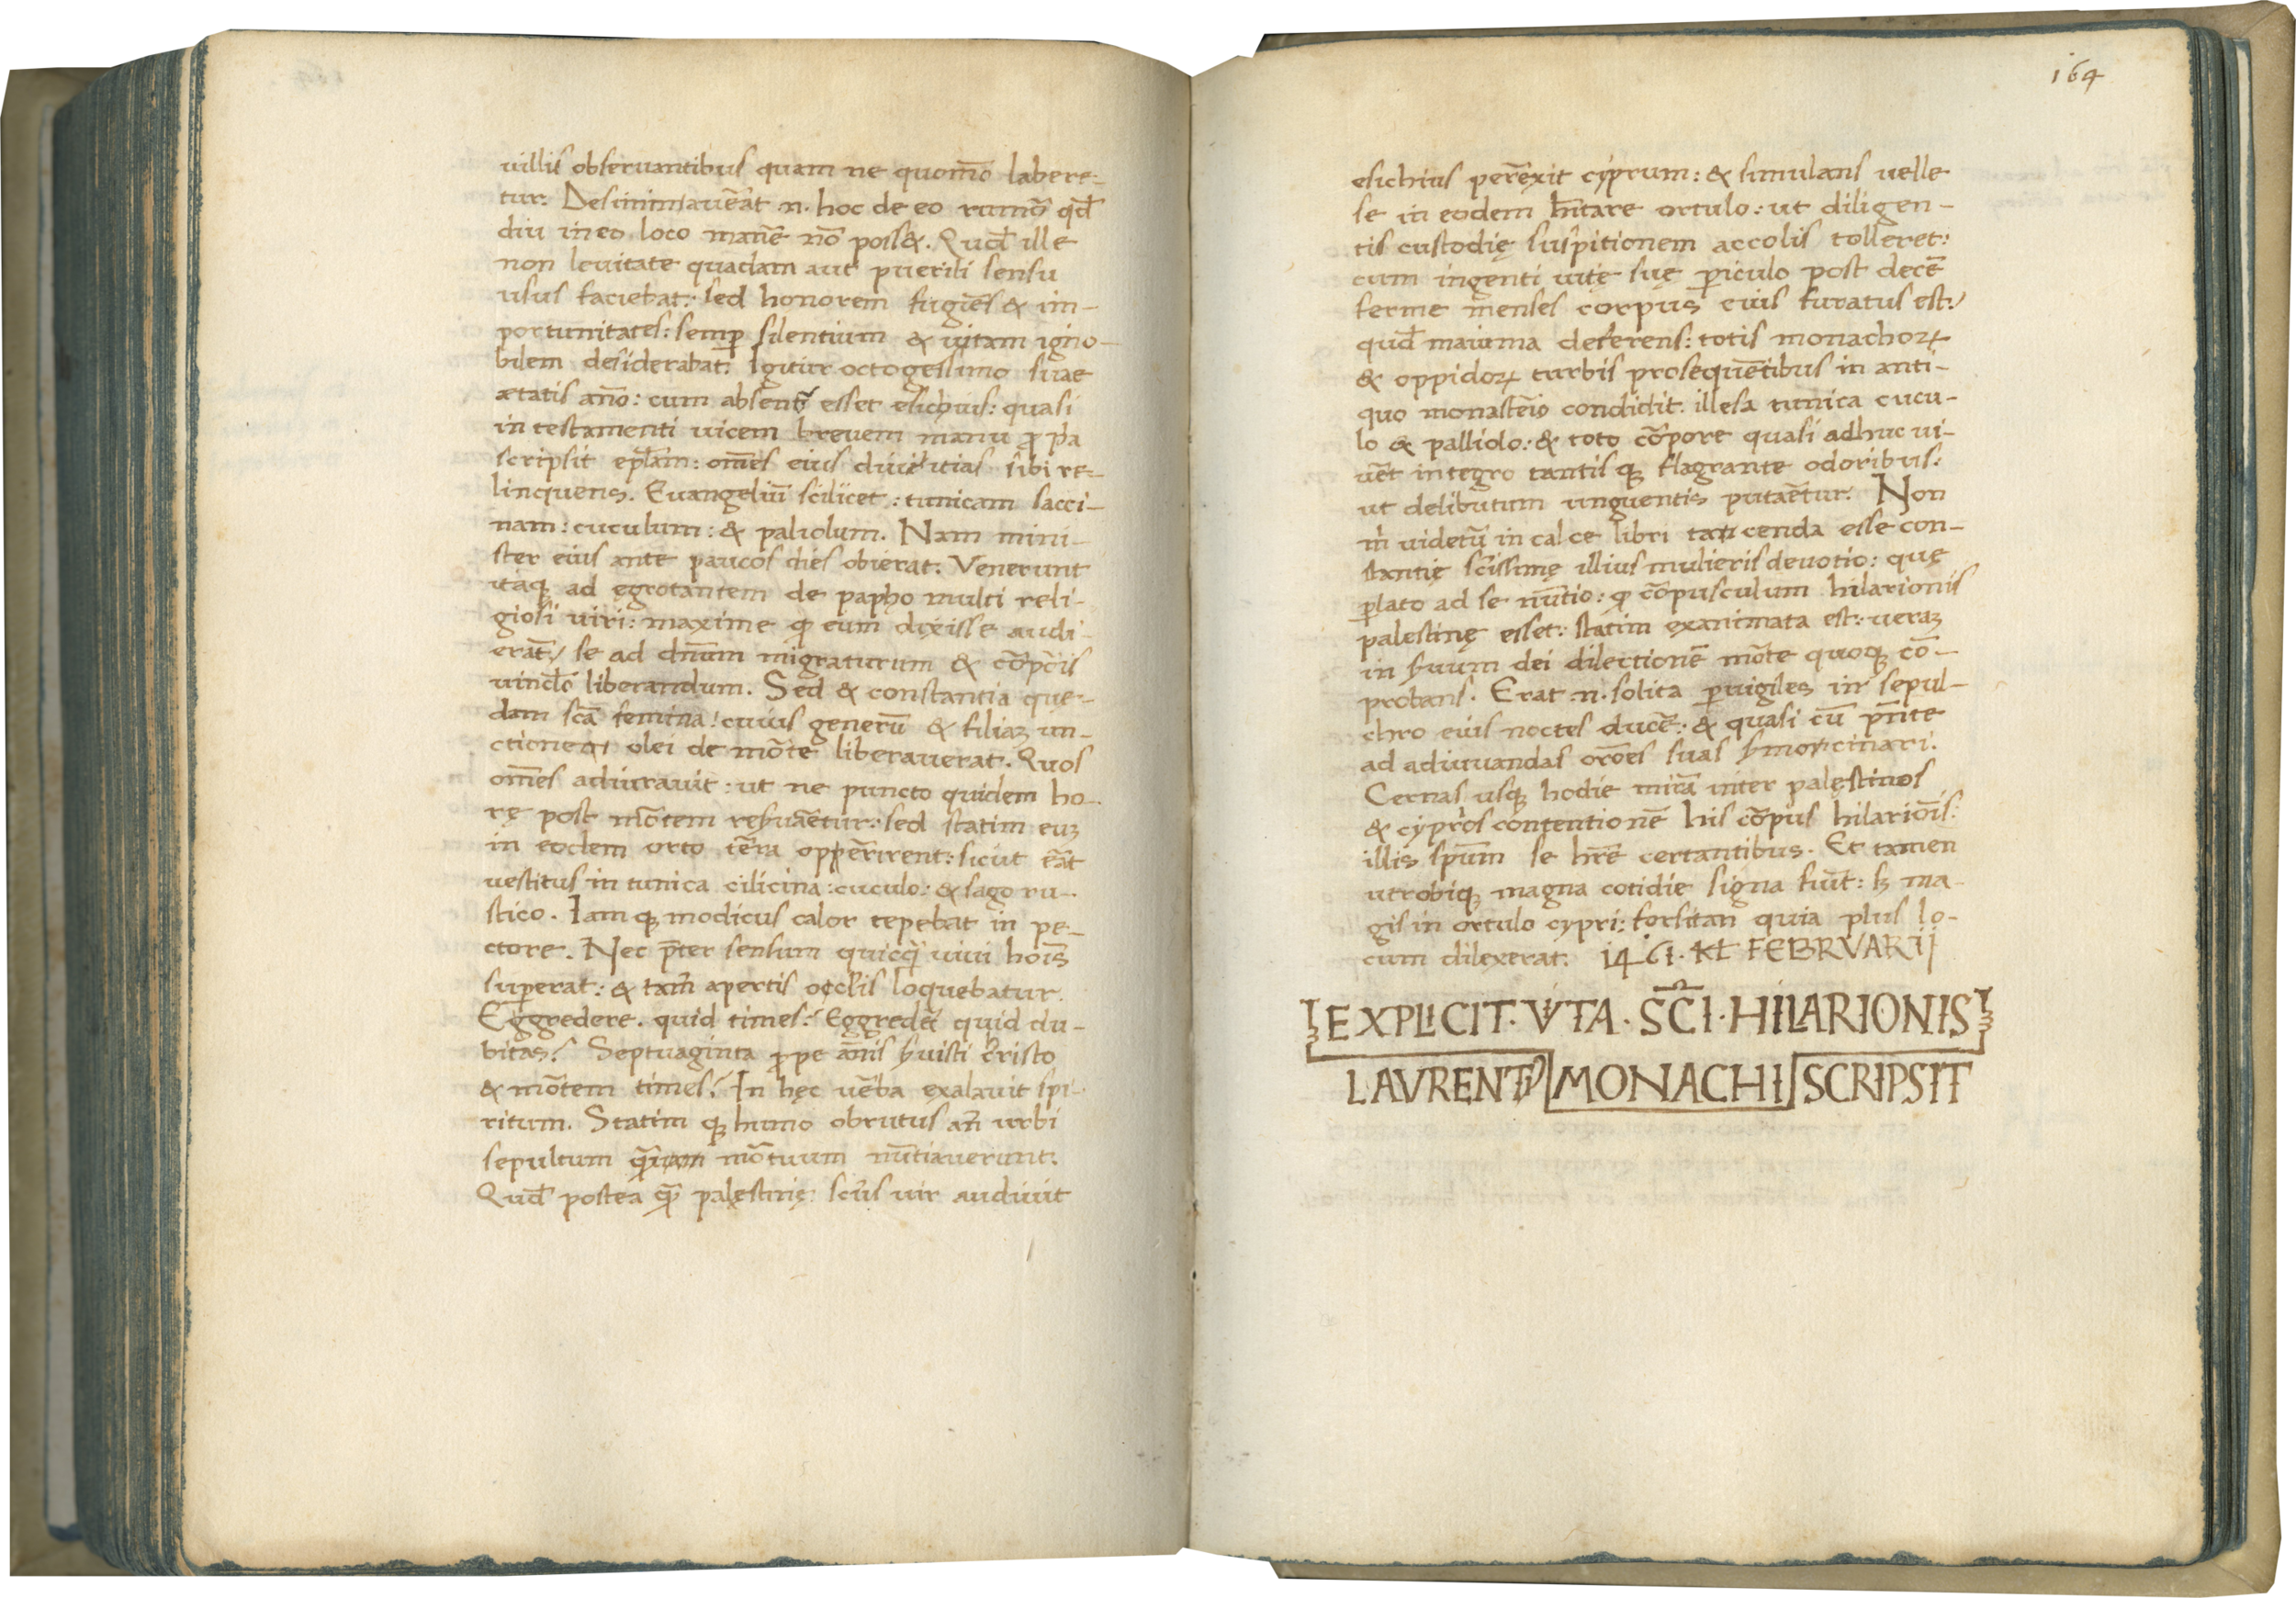 uillis obseruantibus quam ne quom̄o labere-
tur. Desinimauēat .n. hoc de eo rumor̄ qđ
diu in eo loco manē nō poss&. Quđ ille
non leuitate quadam aut puerili sensu
usus faciebat: sed honorem fugiēs & im-
portunitates: semꝑ silentium & uitam igno-
bilem desiderabat. Igitur octogessimo suae
ætatis año: cum absens esset esichius: quasi
in testamenti uicem breuem manu ꝓpͥa
scripsit ep̄lam: om̄es eius diuitias sibi re-
linquens. Euangeliū scilicet: tunicam sacci-
nam: cuculum: & paliolum. Nam mini-
ster eius ante paucos dies obierat. Venerunt
itaqꝫ ad egrotantem de papho multi reli-
giosi uiri: maxime ꝙ eum dixisse audi-
erāt: se ad dn̄um migraturum & cōꝑis
uincl̄o liberandum. Sed & constantia que-
dam sc̄a femina: cuius generū & filiaꝫ un-
ctione olei de mōte liberauerat. Quos
om̄es adiurauit: ut ne puncto quidem ho-
rę post mōtem reẜuāetur: sed statim euꝫ
in eodem orto tēra oppērirent: sicut ēat
uestitus in tunica cilicina: cuculo: & sago ru-
stico. Iam qꝫ modicus calor tepebat in pe-
ctore. Nec p̄ter sensum quicq̄ uiui hoīs
suꝑerat: & tam̄ apertis occl̄is loquebatur.
Eggredere. quid times? Eggredē quid du-
bitas? Septuaginta ꝓpe ānis ẜuisti cr̄isto
& mōtem times? In hęc uēba exalauit spi-
ritum. Statim qꝫ humo obrutus an̄ urbi
sepultum q̄ mōtuum nūtiauerunt.
Quđ postea q̄ palęstinę sc̄us uir audiuit
164
esichius perēxit cyprum: & simulans uelle
se in eodem h̄itare ortulo: ut diligen-
tis custodię suspitionem accolis tolleret:
cum ingenti uitę suę ꝑiculo post decē
ferme menses corpus eius furatus est:
quđ maiuma deferens: totis monachoꝝ
& oppidoꝝ turbis prosequētibus in anti-
quo monastēio condidit. illesa tunica cucu-
lo & palliolo: & toto cōpore quasi adhuc ui-
uēt integro tantis qꝫ flagrante odoribus:
ut delibutum unguentis putāetur. Non
m̍ uidetū in calce libri tacenda esse con-
stantię sc̄issimę illius mulieris deuotio: quę
ꝑlato ad se nūtio: ꝙ cōpusculum hilarionis
palestinę esset: statim exanimata est: ueraꝫ
in ẜuum dei dilectionē mōte quoqꝫ cō-
probans. Erat .n. solita ꝑuigiles in sepul-
chro eius noctes ducē: & quasi cū p̄nte
ad adiuuandas orōes suas ẜmocinari.
Cernas usqꝫ hodie mirā inter palęstinos
& cyprios contentionē his cōpus hilariōis:
illis sp̄um se hrē certantibus. Et tamen
utrobiqꝫ magna cotidie signa fiūt: ẜ ma-
gis in ortulo cypri: forsitan quia plus lo-
cum dilexerat. 1461. KL FEBRVARII
EXPLICIT. VITA. SC̄I. HILARIONIS
LAVRENTIꝰ MONACHI SCRIPSIT